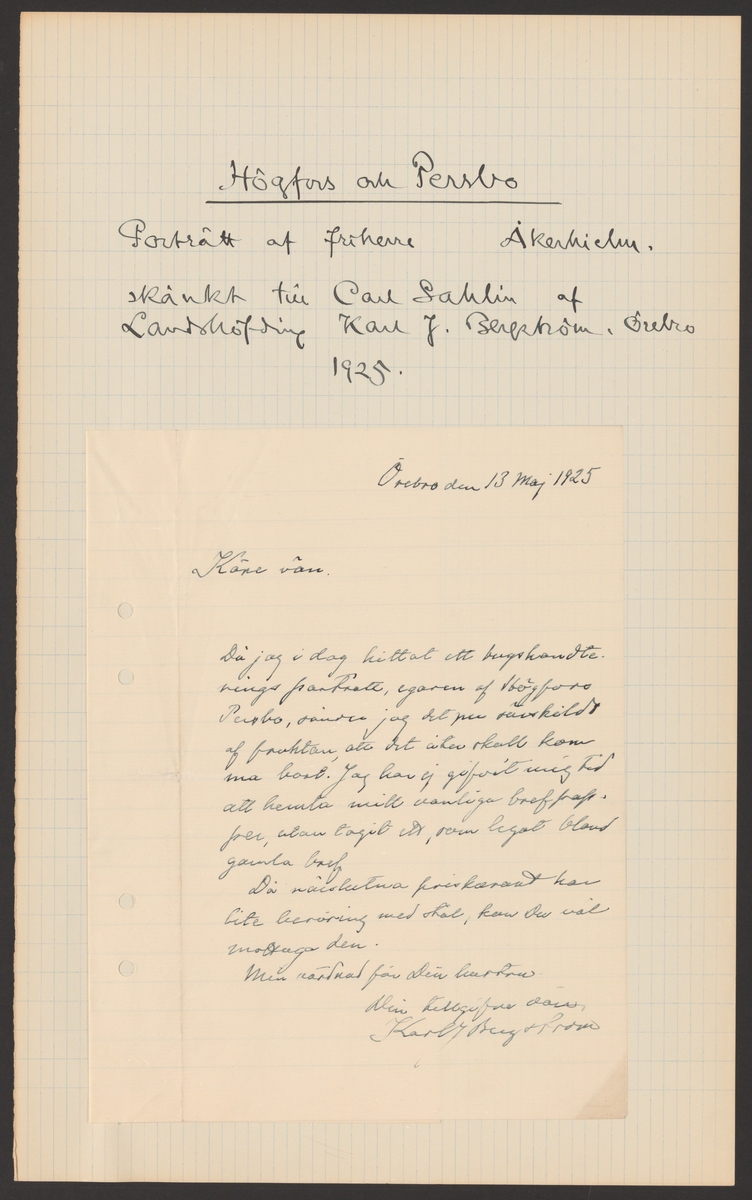 Högfors och Persbo
Porträtt af friherre Åkerhielm.
skänkt till Carl Sahlin af
Landshöfding Karl J. Bergström. Örebro
1925.
Örebro den 13 Maj 1925
Käre vän.
Då jag i dag hittat ett
rings porträtt, egaren af Högfors
Persbo, sänder jag det nu särskildt
af fruktan, att det åter skall kom
ma bort. Jag har ej gifvit mig tid
att hemta mitt vanliga brefpap-
per, utan tagit ett, som legat bland
gamla bref
Då närslutna priskurant har
lite beröring med stål, kan Du väl
mottaga den.
Min vördnad för Din hustru
Din tillgifne vän,
Karl J Bergström